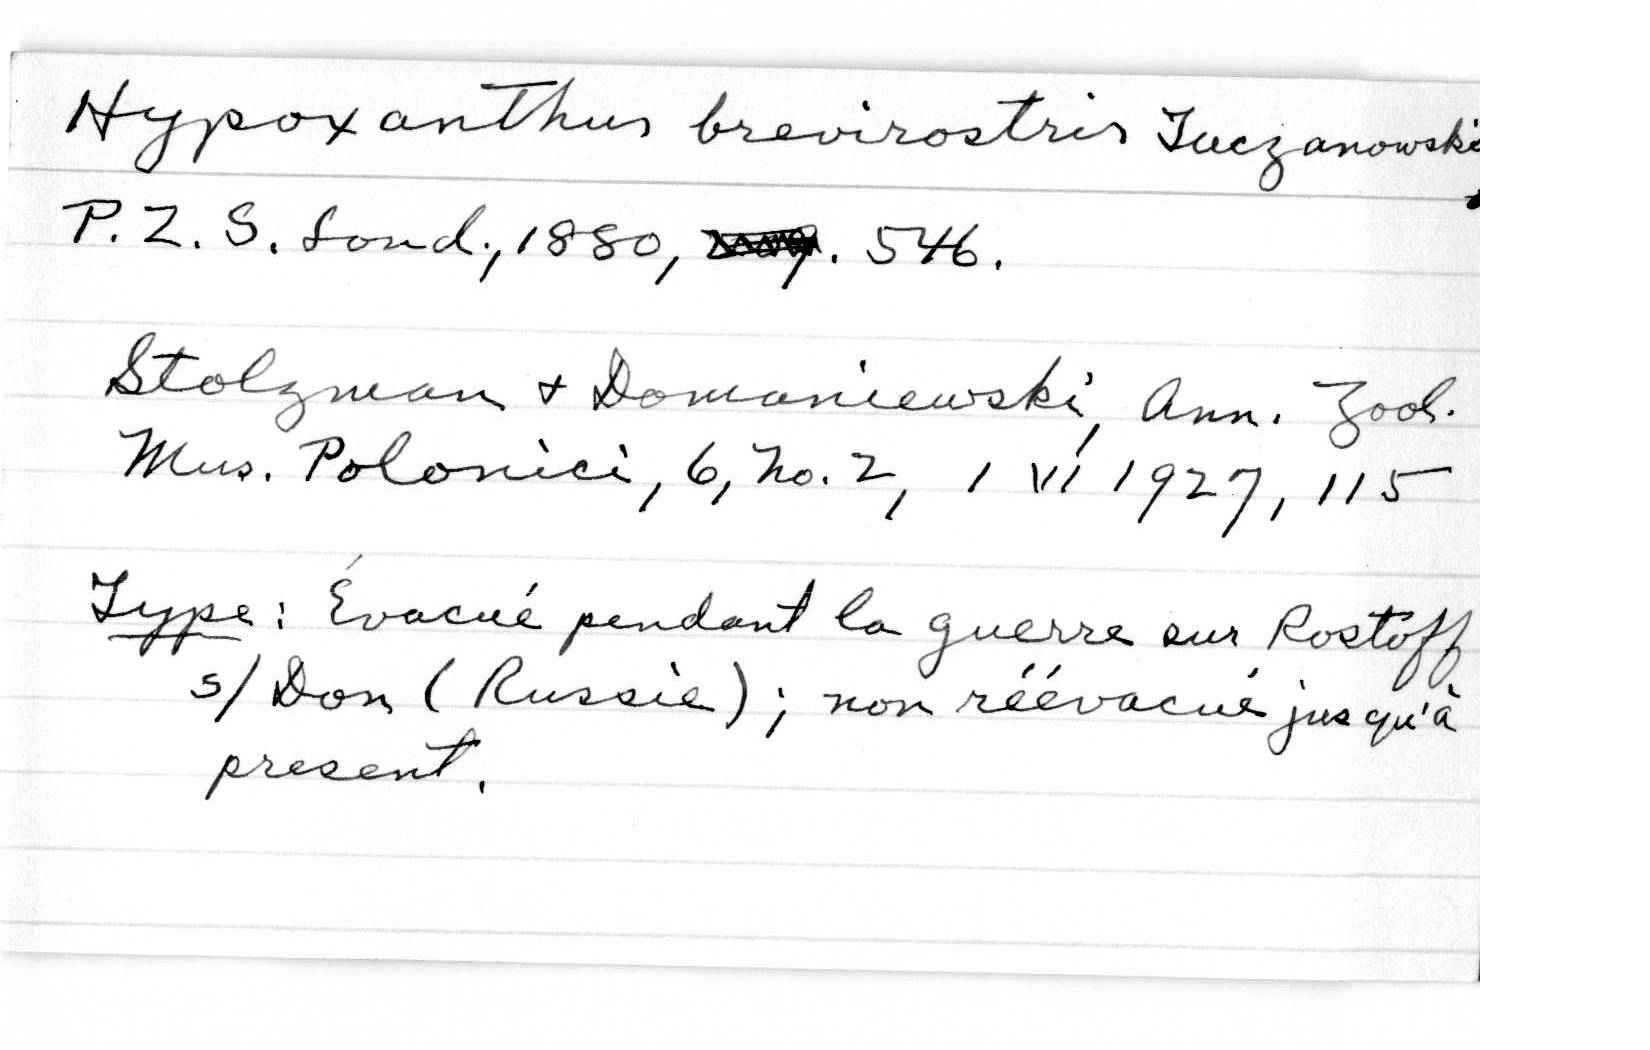 Hypoxanthus brevirostris Taczanowski
P. Z. S. Lond., 1880, . 546.
Stolzman + Domaniewski, Ann. Zool.
Mus. Polonici, 6, No. 2, 1 VI 1927, 115
Type: Évacué pendant la guerre sur Rostoff
s/Don (Russie); non réévacué jusqu'à
present.